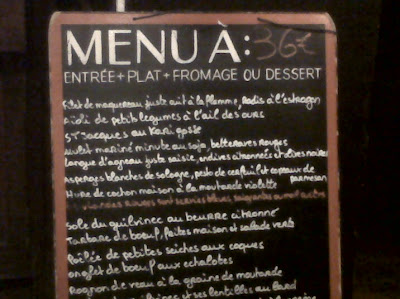 MENU À: 36€
ENTRÉE + PLAT + FROMAGE OU DESSERT
Filet de maquereau juste cuit à la flamme, radis à l'estragon
Aïoli de petits legumes à l'ail des ours
ST Jacques au Kari gosse
mulet mariné minute au soja, betteraves rouges
Langue d'agneau juste saisie, endives citronnées et olives noires
Asperges blanches de sologne, pesto de cerfeuil et copeaux de parmesan
Hure de cochon maison à la moutarde violette
Sole du guilvinec au beurre citronné
Tartare de boeuf, frites maison et salade verte
Poêlée de petites seiches aux coques
Onglet de boeuf aux echalotes
Rognon de veau à la graine de moutarde
et ses lentilles au lard